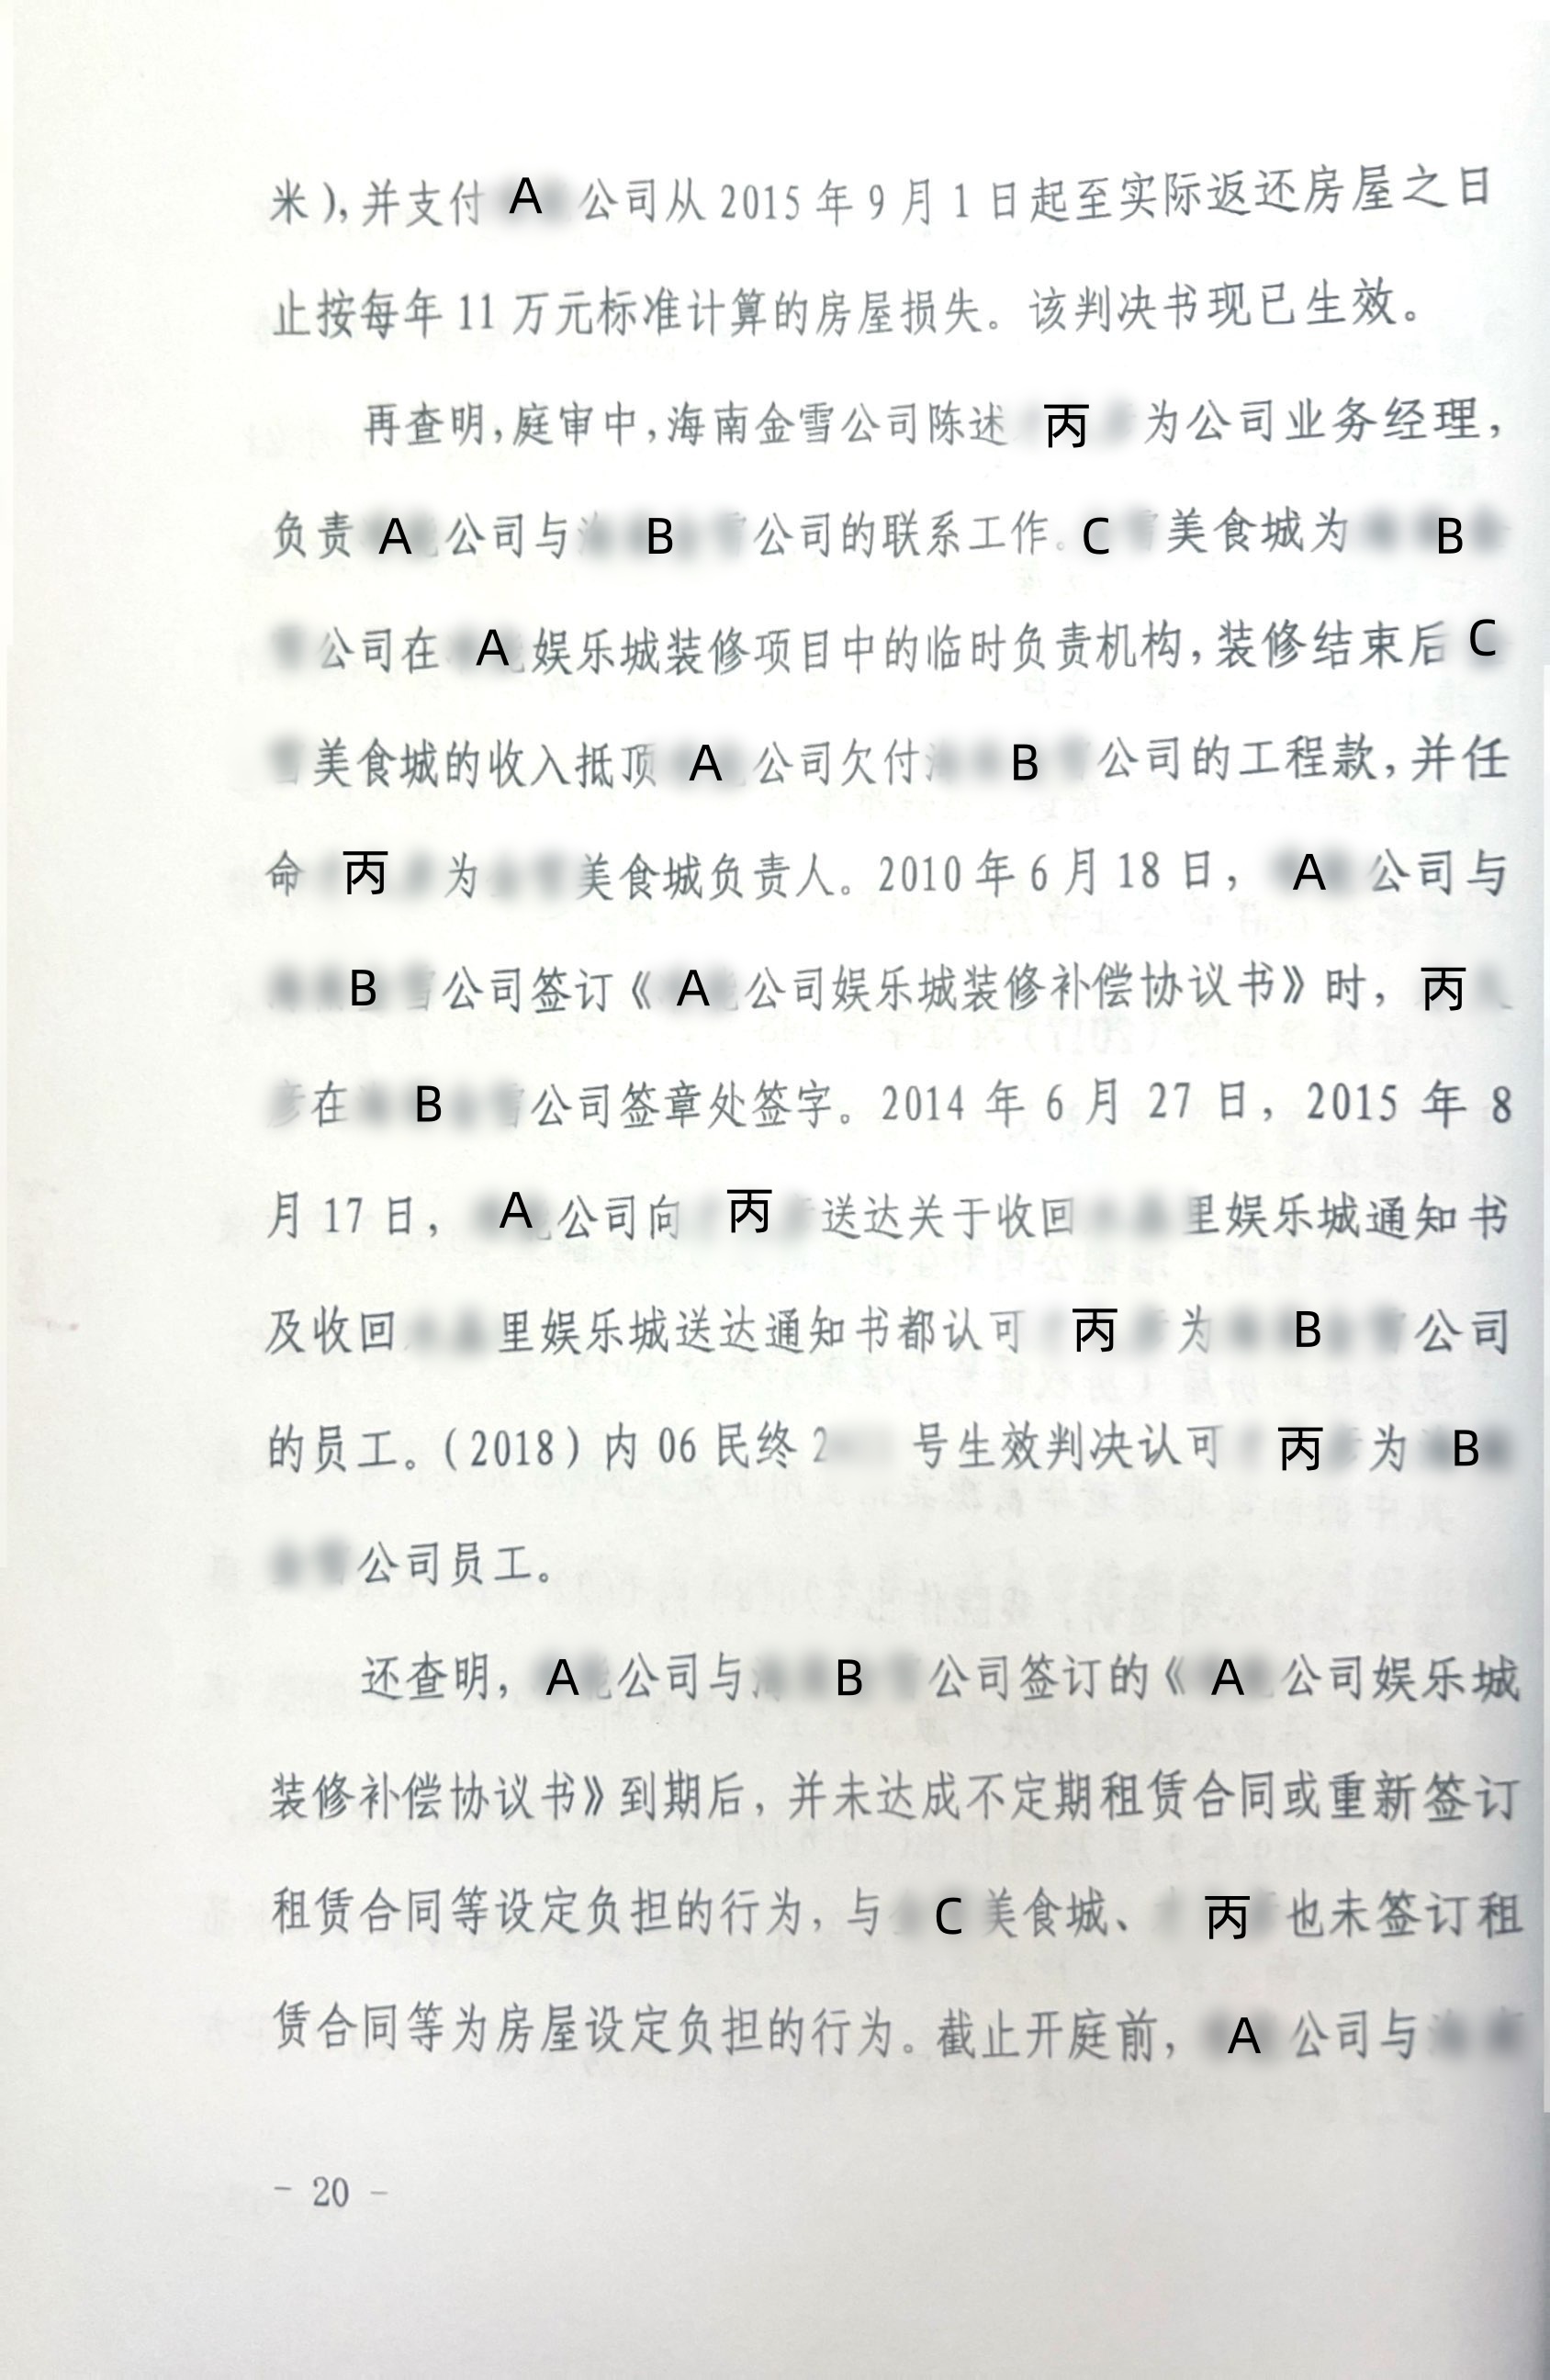 米),并支付 A 公司从 2015 年 9 月 1 日起至实际返还房屋之日
止按每年 11 万元标准计算的房屋损失。该判决书现已生效。
再查明,庭审中,海南金雪公司陈述 丙 为公司业务经理,
负责 A 公司与 B 公司的联系工作。 C 美食城为 B
公司在 A 娱乐城装修项目中的临时负责机构,装修结束后 C
美食城的收入抵顶 A 公司欠付 B 公司的工程款,并任
命 丙 为 美食城负责人。2010 年 6 月 18 日, A 公司与
B 公司签订《 A 公司娱乐城装修补偿协议书》时, 丙
彦在 B 公司签章处签字。2014 年 6 月 27 日, 2015 年 8
月 17 日, A 公司向 丙 送达关于收回 里娱乐城通知书
及收回 里娱乐城送达通知书都认可 丙 为 B 公司
的员工。(2018)内 06 民终 2 号生效判决认可 丙 为 B
公司员工。
还查明, A 公司与 B 公司签订的《 A 公司娱乐城
装修补偿协议书》到期后,并未达成不定期租赁合同或重新签订
租赁合同等设定负担的行为,与 C 美食城、 丙 也未签订租
赁合同等为房屋设定负担的行为。截止开庭前, A 公司与
- 20 -